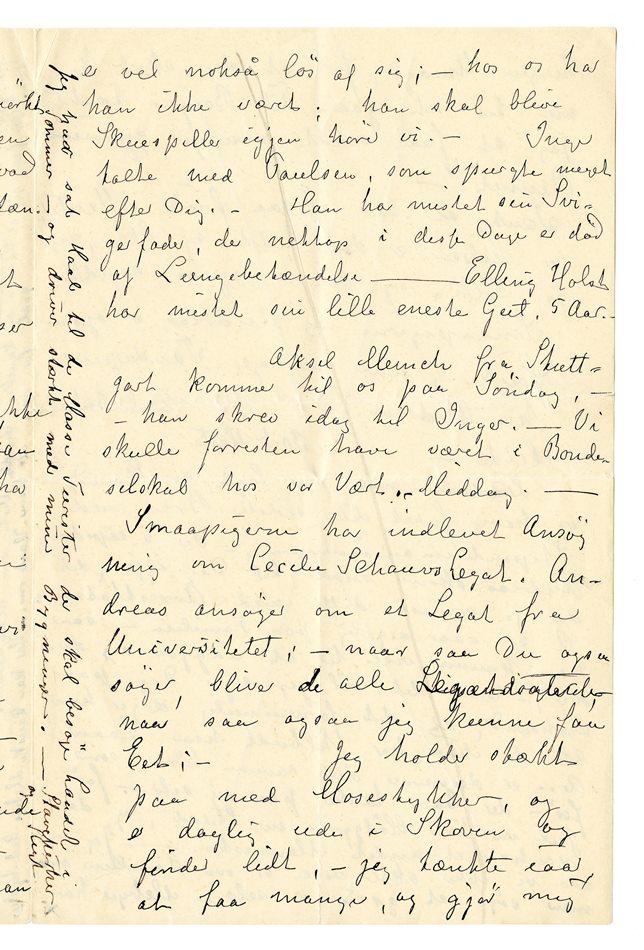 er vel nokså løs af sig; – hos os har
han ikke været; han skal blive
Skuespiller igjen hører vi. – Inger
talte med Paulsen, som spurgte meget
efter Dig. – Han har mistet sin Svi-
gerfader, der nettop i disse Dage er død
af Lungebetændelse — Elling Holst
har mistet sin lille eneste Gut, 5 Aar. –
Aksel Munch fra Stutt-
gart kommer til os paa Søndag, –
– han skrev idag til Inger. – Vi
skulle forresten have været i Bonde-
selskab hos vor Vært, Middag. —
Smaapigerne har indlevet Ansøg
ning om Cecilie Schouvs Legat. An-
dreas ansøger om et Legat fra
Universitetet; – naar saa Du ogsaa
søger, bliver de alle
naar saa ogsaa jeg kunne faa
Eet; – Jeg holder stærkt
paa med Mosestykker, og
er daglig ude i Skoven og
finder lidt, – jeg tænkte iaar
at faa mange, og gjør mig
Jeg har sat Haab til de Masse Turister der skal besøge Landet i
Sommer – og driver stærkt med mine Bygninger. —
og